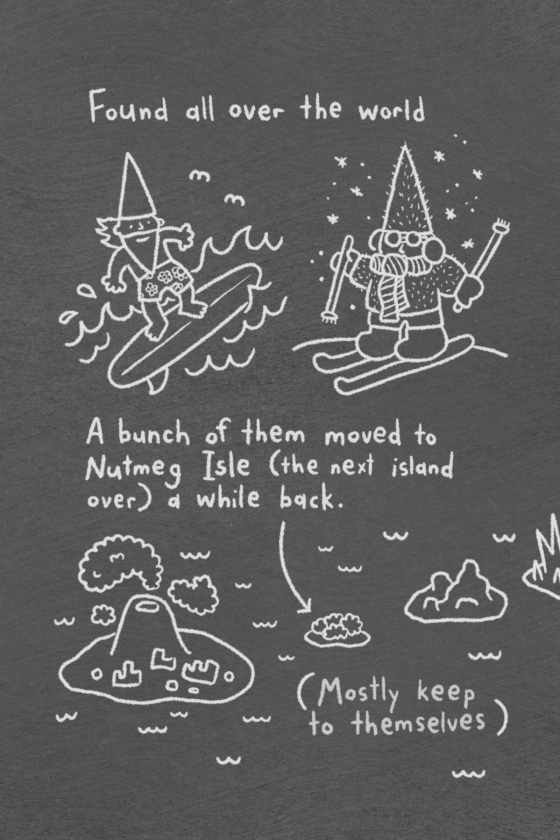 Found all over the world
A bunch of them moved to
Nutmeg Isle (the next island
over) a while back.
(Mostly keep
to themselves)